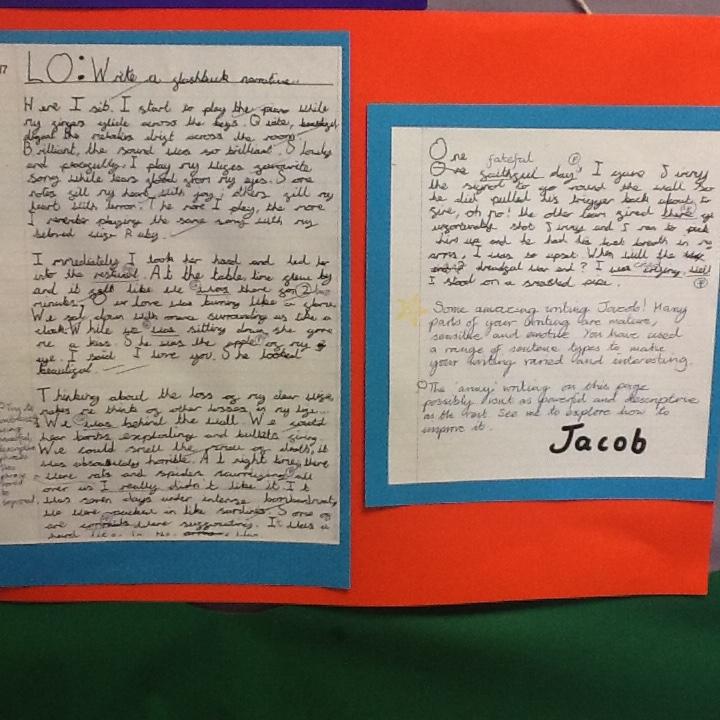 LO: Write a flashback narrative.
Here I sit. I start to play the piano while
my fingers glide across the keys. Quiet, beautiful
elegant the melodies drift across the room.
Brilliant, the sound was so brilliant. Slowly
and peacefully I play my wifes favourite
song while tears flood from my eyes. Some
notes fill my heart with joy; others fill my
heart with terror. The more I play, the more
I remember playing the same song with my
beloved wife Ruby.
I immediately I took her hand and led her
into the restraunt. At the table, time flew by
and it felt like we was there for 2
minutes. Our love was burning like a flame.
We sat down with more surrounding us like a
cloak. While we was sitting down she gave
me a kiss. She was the apple of my
eye. I said I love you. She looked
beautiful.
Thinking about the loss of my dear wife
makes me think of other losses in my life...
We was behind the wall. We could
hear bombs exploding and bullets firing.
We could smell the smell of death, it
was absolutely horrible. At night time, there
were rats and spiders scurrying all
over us I really didn't like it. It
was seven days under intense bombardment,
We were packed in like sardines. Some of
are comrads were suffocating. It was a
One fateful
One faithful day, I gave Jimmy
the signal to go round the wall so
he did pulled his trigger back about to
fire, oh no! the other team fired there
unfortunatly shot Jimmy and I ran to pick
him up and he had his last breath in my
arms, I was so upset. When will the
dreadful war end? I was crying well
I stood on a
Some amazing writing Jacob! Many
parts of your writing are mature,
sensitive and emotive. You have used
a range of sentence types to make
your writing varied and interesting.
The 'army' writing on this page
possibly isn't as powerful and descriptive
as the rest. See me to explore how to
improve it.
Jacob